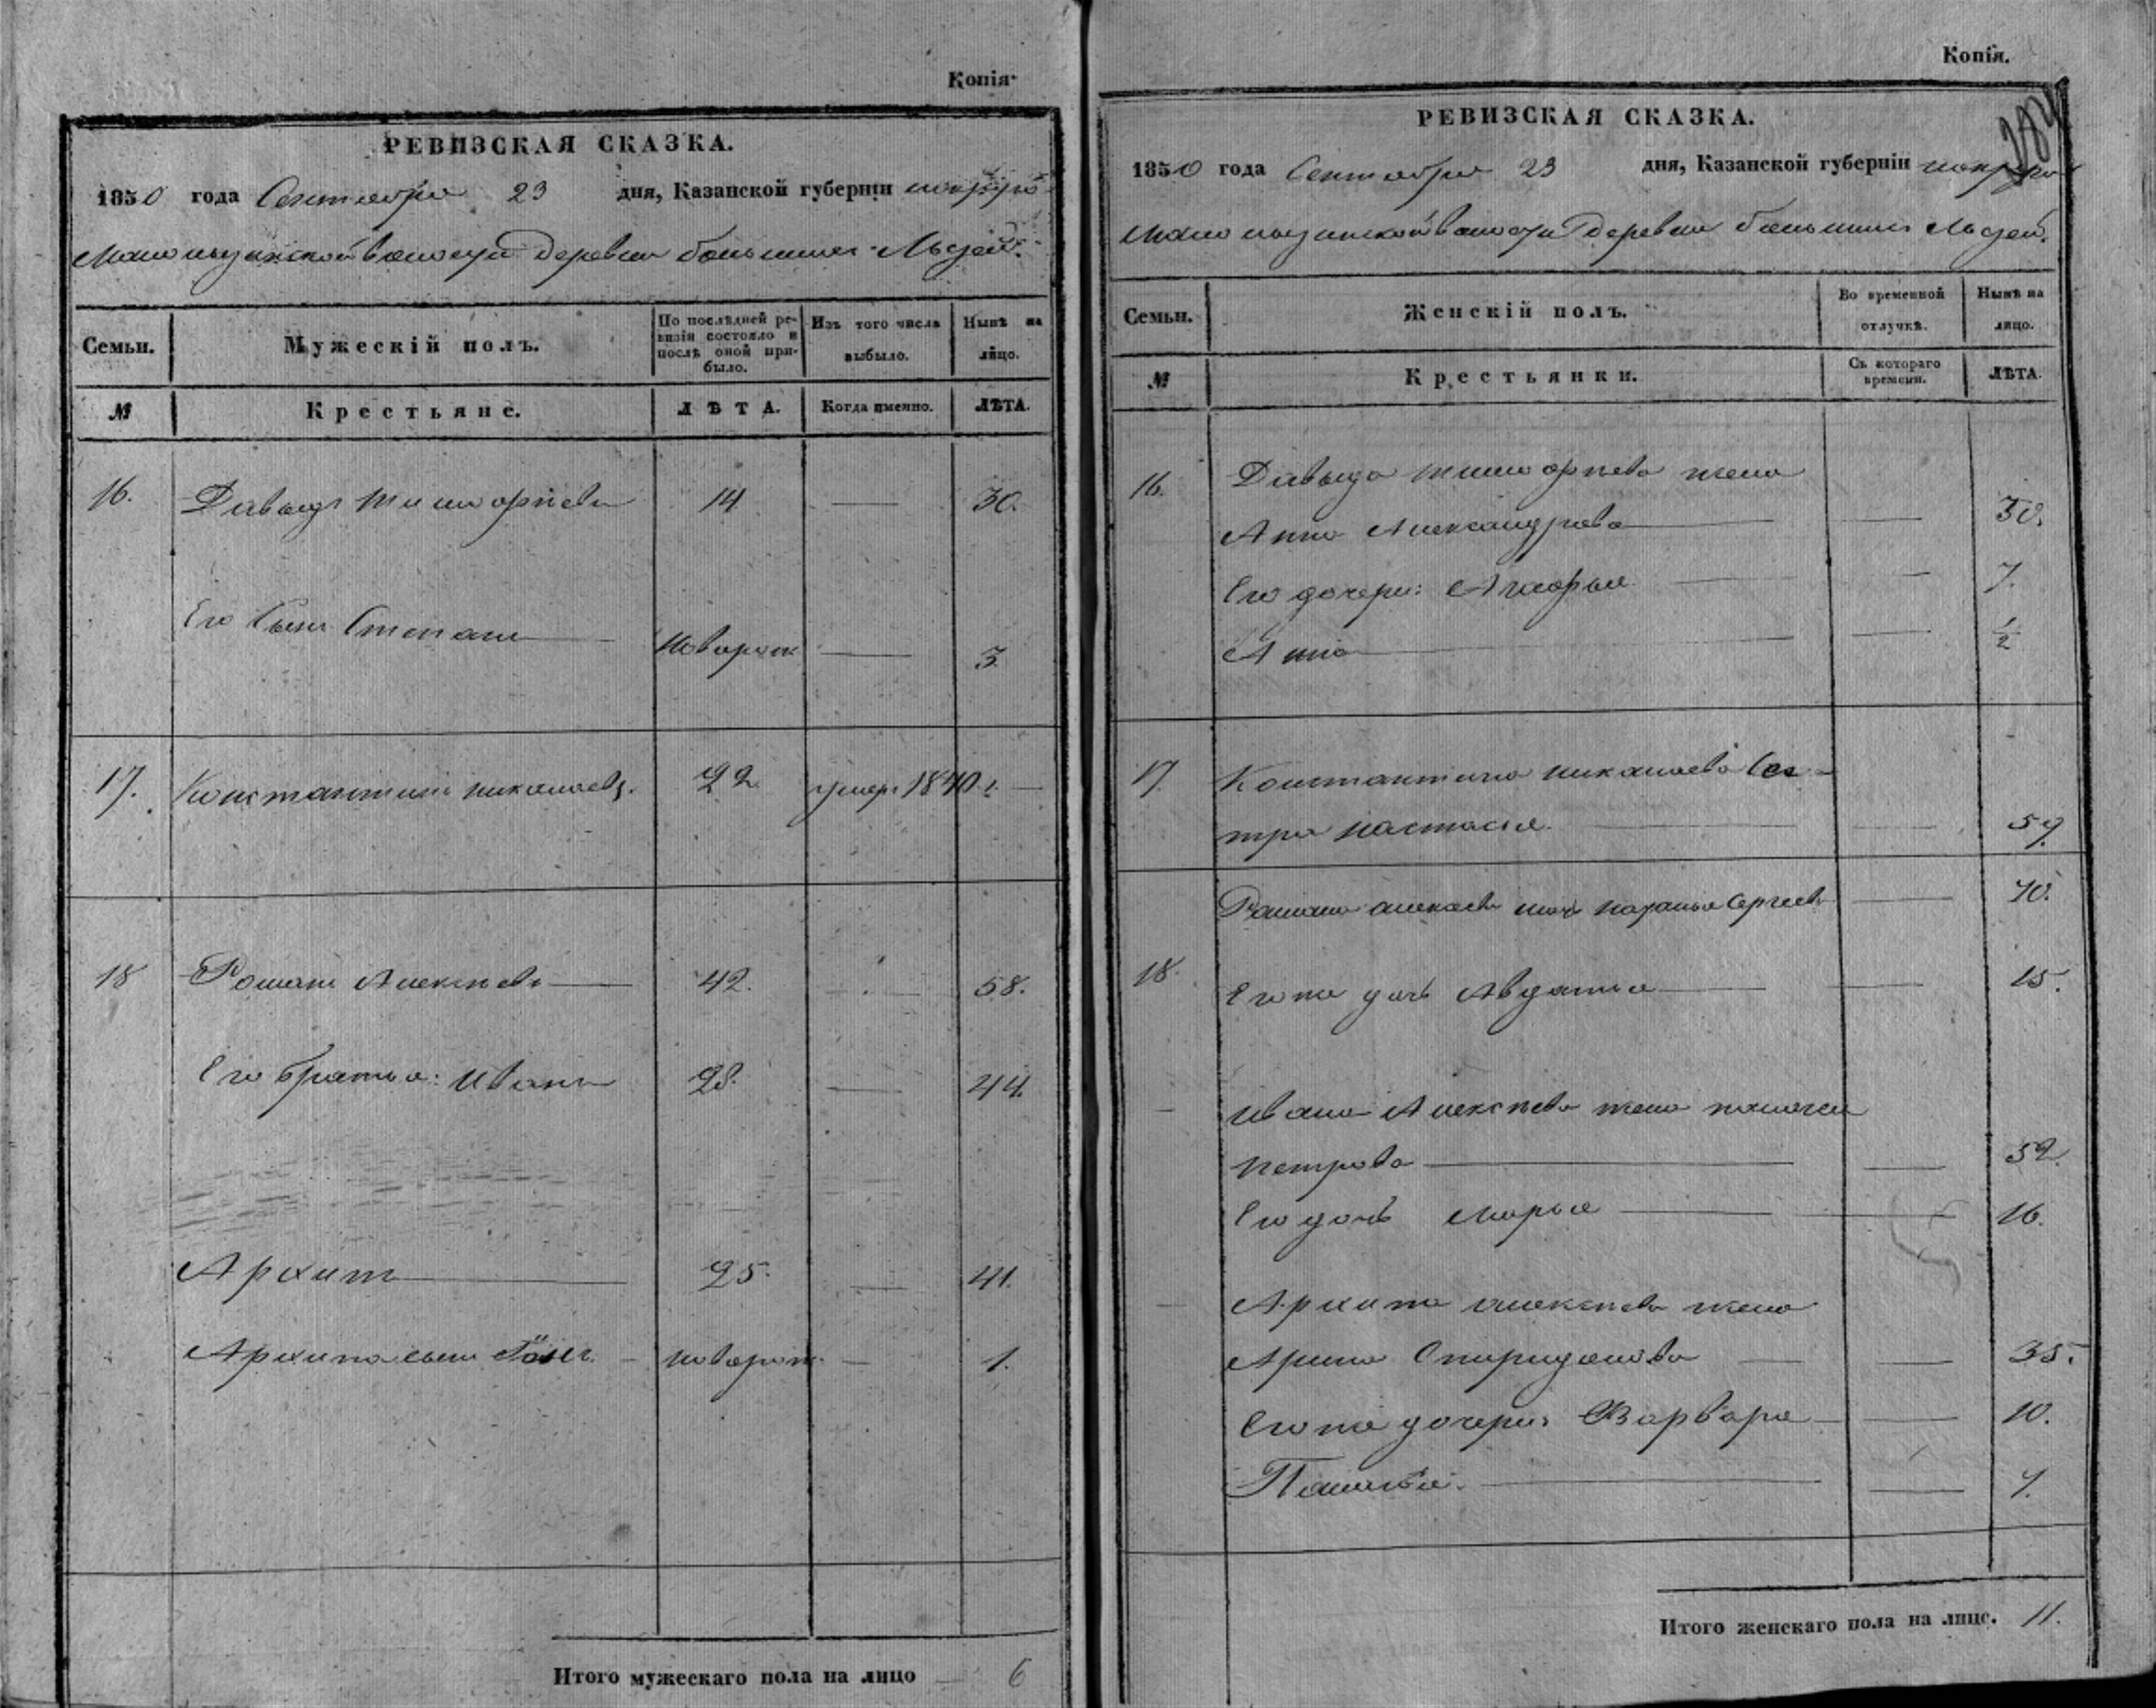 Копія.
РЕВИЗСКАЯ СКАЗКА.
1850 года Сентября 23 дня, Казанской губерніи
волости деревни большихъ Лызей.
Семьи.
Мужескій полъ.
По послѣдней ревизіи состояло и послѣ оной прибыло.
Изъ того числа выбыло.
Нынѣ на лицо.
№
Крестьяне.
ЛѢТА.
Когда именно.
ЛѢТА.
16. Давыдъ Тимофѣевъ 14 30.
Его сынъ Степанъ новорож 3
17. Константинъ николаевъ. 22 умеръ 1840 г.
18 Романъ Алексѣевъ 42. 58.
Его братья: Иванъ 28. 44.
Архипъ 25. 41.
Архипа сынъ новорож. 1.
Итого мужескаго пола на лицо 6
Копія.
РЕВИЗСКАЯ СКАЗКА.
1850 года Сентября 23 дня, Казанской губерніи
волости деревни большихъ Лызей.
Семьи.
Женскій полъ.
Во временной отлучкѣ.
Нынѣ на лицо.
№
Крестьянки.
Съ котораго времени.
ЛѢТА.
16. Давыда тимофѣева жена
Анна Александрова 30.
Его дочери: Агафья 7.
Анна 1/2
17. Константина николаева Сес-
тра настасья. 59.
Романа алексѣева Сергѣева 70.
18. Его же дочь Авдотья 15.
Ивана Алексѣева жена
петрова 52.
Его дочь Марья 16.
Архипа алексѣева жена
Арина Спиридонова 35.
Его же дочери: Варвара 10.
7.
Итого женскаго пола на лице. 11.